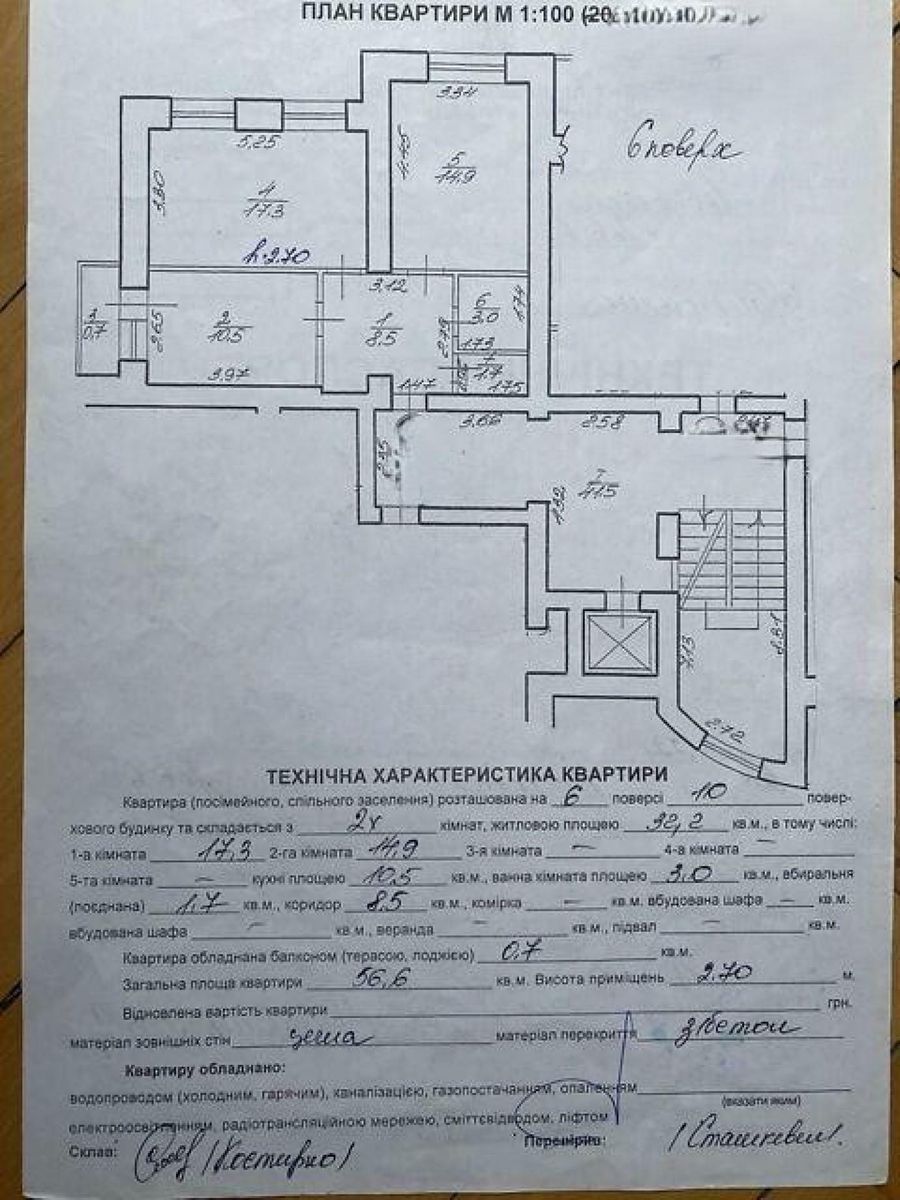 ПЛАН КВАРТИРИ М 1:100 (20
6 поверх
3.34
5.25
4.45
5
14.9
3.30
4
17.3
h-2.70
3.12
3
0.7
2.65
2
10.5
1
8.5
2.79
6
3.0
1.74
1.73
7
1.7
1.75
3.97
1.47
3.66
2.58
2.35
1.92
I
41.5
7.13
8.81
2.72
ТЕХНІЧНА ХАРАКТЕРИСТИКА КВАРТИРИ
Квартира (посімейного, спільного заселення) розташована на 6 поверсі 10 повер-
хового будинку та складається з 2х кімнат, житловою площею 32,2 кв.м., в тому числі:
1-а кімната 17,3 2-га кімната 14,9 3-я кімната — 4-а кімната —
5-та кімната — кухні площею 10,5 кв.м., ванна кімната площею 3,0 кв.м., вбиральня
(поєднана) 1,7 кв.м., коридор 8,5 кв.м., комірка — кв.м. вбудована шафа — кв.м.
вбудована шафа — кв.м., веранда — кв.м., підвал — кв.м.
Квартира обладнана балконом (терасою, лоджією) 0,7 кв.м.
Загальна площа квартири 56,6 кв.м. Висота приміщень 2.70 м.
Відновлена вартість квартири грн.
матеріал зовнішніх стін цегла матеріал перекриття з/бетон
Квартиру обладнано:
водопроводом (холодним, гарячим), каналізацією, газопостачанням, опаленням
(вказати яким)
електроосвітленням, радіотрансляційною мережею, сміттєвідводом, ліфтом
Склав: Перевірив: